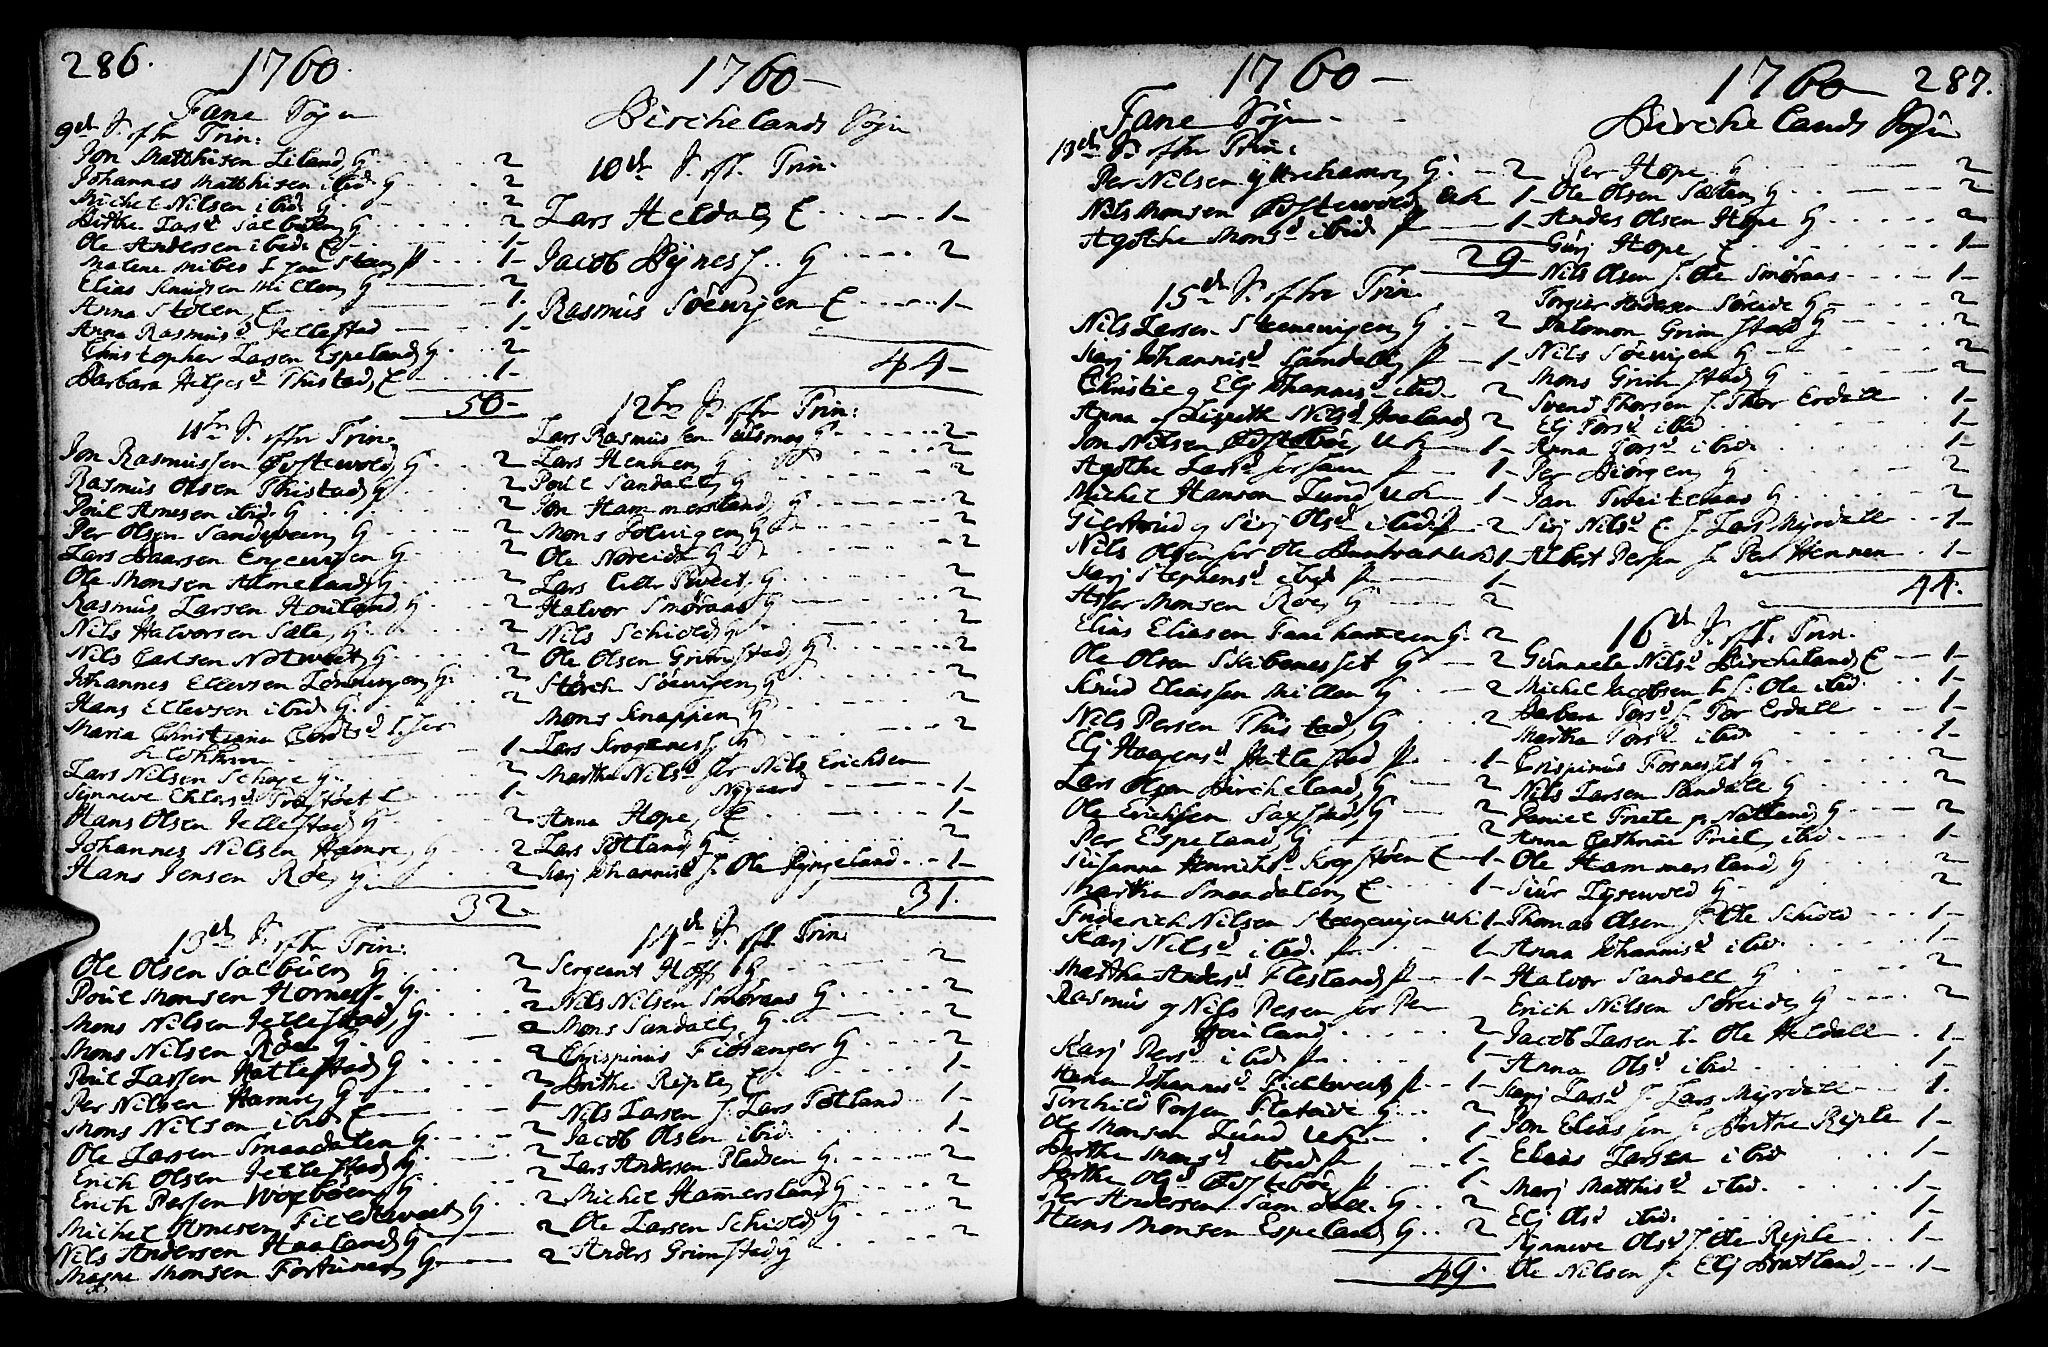 286. 1760.
Fane Sogn
9de S. efter Trin:
Jon Matthisen Liland, G. 2
Johannes Matthisen ibid. G. 2
Michel Nilsen ibid. G. 2
Birthe Larsd Sælbuen, G. 2
Ole Andersen ibid. E. 1
Elias Knudsen Millen, G. 2
Anna Stølen, E. 1
Anna Rasmusd Jellestad 1
Christopher Larsen Espeland, G. 2
Barbara Helgesd Thistad, E. 1
50
11te S. efter Trin.
Jon Rasmussen Østevold, G. 2
Rasmus Olsen Thistad, G. 2
Poul Arnesen ibid. G. 2
Per Olsen Sandven, G. 2
Lars Baarsen Engevigen G. 2
Ole Monsen Almeland, G. 2
Rasmus Larsen Houland, G 2
Nils Halvorsen Sæle, G. 2
Nils Carlsen Natveit, G. 2
Johannes Ellevsen Lønningen, G. 2
Hans Ellevsen ibid. G. 2
Maria Christiana
1
Lars Nilsen Schage G. 2
Synneve E 1
Hans Olsen Jellestad G 2
Johannes Nilsen Hamre, G 2
Hans Jensen Røe, G. 2
32.
13de S. efter Trin:
Ole Olsen Sælbuen, G. 2
Poul Monsen Hornesse G. 2
Mons Nilsen Jellestad, G. 2
Mons Nilsen Røe G. 2
Poul Larssen Hatlestad G. 2
Per Nilsen Hamre, G 2
Mons Nilsen ibid. E 1
Ole Larsen Smaadalen G. 2
Erich Olsen Jellestad G. 2
Erich Persen G. 2
Michel Arnesen Fieldtveit, G. 2
Nils Andersen Haaland, G. 2
Magne Monsen Fortunen, G. 2
1760
Birchelands Sogn
10de S. eft. Trin.
Lars Heldal, E 1
Jacob Bynes, G. 2
Rasmus Søevigen E 1
44
12te S. efter Trin:
Lars Rasmussen G. 2
Lars Hennen, G 2
Poul Sandall, G 2
Jon Hammersland, G 2
Mons Solvigen, G. 2
Ole Noreide G. 2
Lars Tveit, G. 2
Halvor Smøraas G. 2
Nils Schiold, G. 2
Ole Olsen Grimstad, G. 2
Størch Søevigen, G. 2
Mons Knappen, G. 2
Lars Kragenes, G. 2
Martha Nilsd for Nils Erichsen
Nygaard 1
Anna Hope, E 1
Lars Totland, G. 2
Karj Johannisd f. Ole Ryngeland 1
31.
14de S. eft. Trin.
Sergeant Hoff, G. 2
Nils Nilsen Smøraas G. 2
Mons Sandall, G. 2
Chrispinus Fiosanger G. 2
Birthe Riple, E. 1
Nils Larsen f. Lars Totland 1
Jacob Olsen ibid. 1
Lars Andersen Pladsen G. 2
Michel Hammersland, G. 2
Ole Larsen Schiold, G. 2
Anders Grimstad, G 2
1760
Fane Sogn
13de S. efter Trin:
Per Nilsen yttrehamre, G. 2
Nils Monsen Østevold, Uk 1
Agothe Monsd ibid P 1
29
15de S. efter Trin.
Nils Larsen Steenevigen, G. 2
Karj Johannisd Sandall, P 1
Christie og Elj Johannisd ibid. 2
Anna og Lisbeth Nilsd Houland, 2
Jon Nilsen Østebøe, Uk 1
Agothe Larsd P 1
Michel Hansen Lund Uk 1
Giertrud og Sirj Olsd ibid. P 2
Nils Olsen for Ole Uk 1
Karj Stephensd ibid P 1
Monsen Røe, G 2
Elias Eliasen Fanehammeren G. 2
Ole Olsen Skibenesset G 2
Knud Eliassen Millen G 2
Nils Persen Thistad, G 2
Elj Haagensd Hatlestad P 1
Lars Olsen Bircheland, G 2
Ole Erichsen G 2
Per Espeland, G 2
Susanna Henrichsd E 1
Martha Smaadalen, E 1
Friderich Nilsen Steenevigen Uk 1
Karj Nilsd ibid. P. 1
Martha Andersd Flesland, P 1
Rasmus og Nils Persen for Per
Houland 2
Karj Persd ibid P. 1
Hanna Johannisd Fieldtveit, P 1
Torchild Torsen Flataide G. 2
Ole Monsen Lund Uk. 1
Birthe Monsd ibid P 1
Birthe Olsd Østebøe P. 1
Per Andersen Samdall. G. 2
Hans Monsen Espeland, G. 2
49.
1760 287.
Birchelands Sogn
Per Hope. G 2
Ole Olsen Sælen, G 2
Anders Olsen Hope G 2
Gurj Hope, E 1
Nils Olsen f. Ole Smøraas 1
Torgier Andersen Søreide G 2
Salomon Grimstad G 2
Nils Søevigen G 2
Mons Grimstad, G 2
Svend Thorsen f. Thor Erdall 1
Elj Torsd ibid 1
Anna Torsd ibid 1
Per Biørgen, G 2
Jan Tveiteraas G 2
Sirj Nilsd E f. Lars Myrdall 1
Albert Persen f. Per Hennen 1
44.
16de S. eft. Trin.
Gunnela Nilsd Bircheland, E 1
Michel Jacobsen f. Ole ibid. 1
Barbara Torsd f. Tor Erdall 1
Martha Torsd ibid 1
Crispinus Fosnesset G 2
Nils Larsen Sandall G 2
Daniel Friele p. Natland, G 2
Anna Cathrine Friele, ibid. 1
Ole Hammersland, G 2
Siur Lysevold G 2
Thomas Olsen f. Ole Schiold 1
Anna Johannisd ibid. 1
Halvor Sandall G. 2
Erich Nilsen Søreide, G 2
Jacob Larsen f. Ole Heldall 1
Anna Olsd ibid. 1
Karj Larsd f. Lars Myrdall 1.
Jon Eliassen f. Birthe Riple 1
Elias Larsen ibid 1
Marj Matthisd ibid. 1
Elj Olsd ibid. 1
Synneve Olsd f. Ole Riple 1
Ole Nilsen f. Elj Bratland, 1